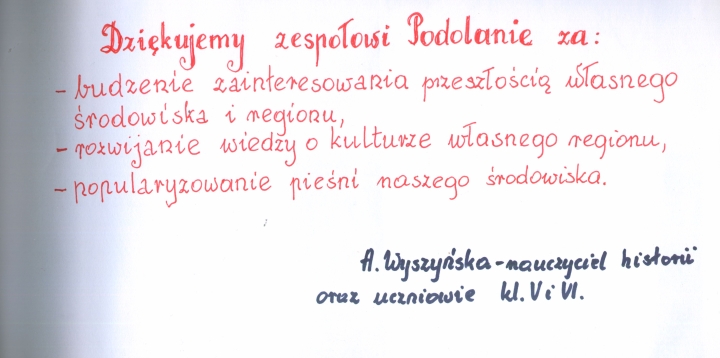 Dziękujemy zespołowi Podolanie za:
- budzenie zainteresowania przeszłością własnego
środowiska i regionu,
- rozwijanie wiedzy o kulturze własnego regionu,
- popularyzowanie pieśni naszego środowiska.
A. Wyszyńska - nauczyciel historii
oraz uczniowie kl. V i VI.